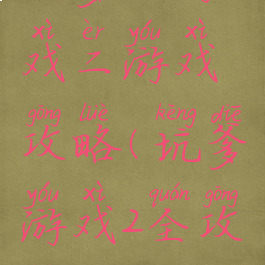 xì èr yóu xì
戏二游戏
gōng lüè kēng diē
攻略(坑爹
yóu xì quán gōng
游戏2全攻